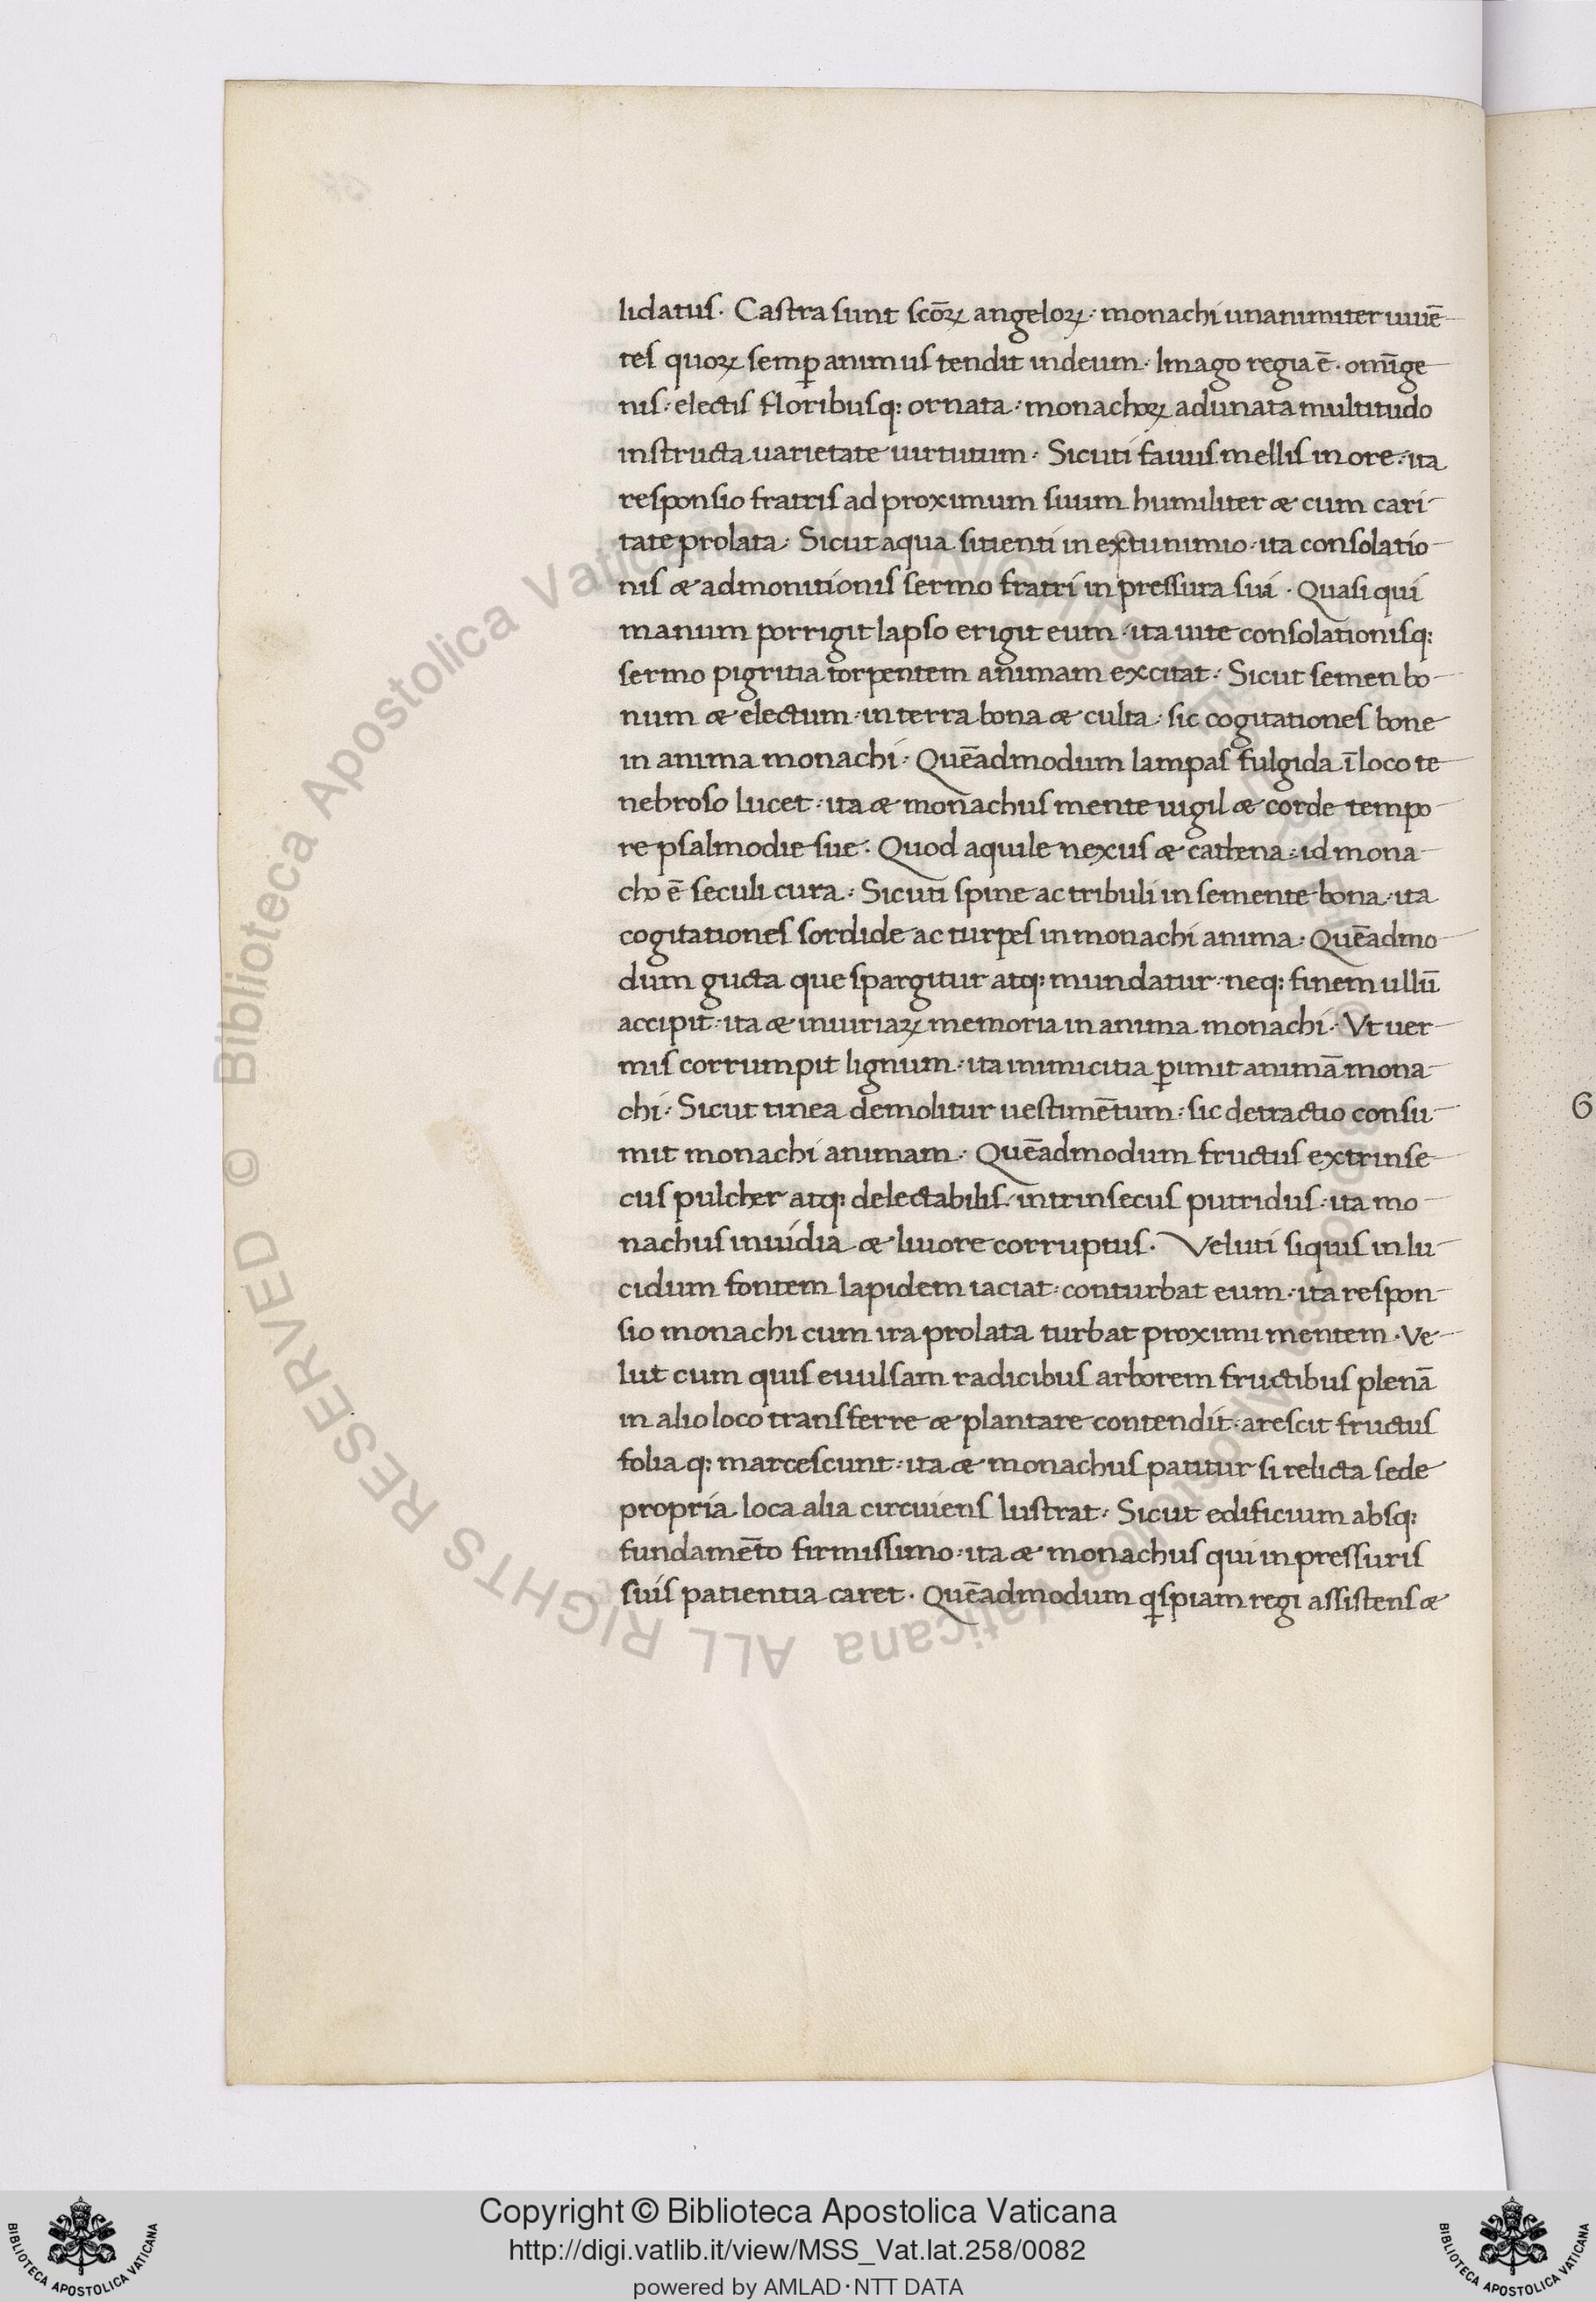 lidatus. Castra sunt scōꝝ angeloꝝ: monachi unanimiter uiuē-
tes quoꝝ semꝑ animus tendit indeum. Imago regia ē. omīge
nis: electis floribusq: ornata: monachoꝝ adunata multitudo
instructa uarietate uirtutum. Sicuti fauus mellis in ore: ita
responsio fratris ad proximum suum humiliter & cum cari-
tate prolata. Sicut aqua sitienti in extu nimio: ita consolatio
nis & admonitionis sermo fratri in pressura sui. Quasi qui
manum porrigit lapso erigit eum: ita uite consolationisq:
sermo pigritia torpentem animam excitat. Sicut semen bo-
num & electum in terra bona & culta: sic cogitationes bone
in anima monachi. Quēadmodum lampas fulgida ī loco te
nebroso lucet: ita & monachus mente uigil & corde tempo
re psalmodie sue. Quod aquile nexus & cathena: id mona-
cho ē seculi cura. Sicuti spine ac tribuli in semente bona: ita
cogitationes sordide ac turpes in monachi anima. Quēadmo
dum gucta que spargitur atq: mundatur: neq: finem ullū
accipit: ita & iniuriaꝝ memoria in anima monachi. Vt uer-
mis corrumpit lignum: ita inimicitia ꝑimit animā mona-
chi. Sicut tinea demolitur uestimētum: sic detractio consu-
mit monachi animam. Quēadmodum fructus extrinse
cus pulcher atq: delectabilis intrinsecus putridus: ita mo-
nachus inuidia & liuore corruptus. Veluti siquis in lu-
cidum fontem lapidem iaciat: conturbat eum: ita respon-
sio monachi cum ira prolata turbat proximi mentem. Ve-
lut cum quis euulsam radicibus arborem fructibus plenā
in alio loco transferre & plantare contendit: arescit fructus
foliaq: marcescunt: ita & monachus patitur si relicta sede
propria loca alia circuiens lustrat. Sicut edificium absq:
fundamēto firmissimo: ita & monachus qui in pressuris
suis patientia caret. Quēadmodum qispiam regi assistens &
6
© Biblioteca Apostolica Vaticana ALL RIGHTS RESERVED
Copyright © Biblioteca Apostolica Vaticana
http://digi.vatlib.it/view/MSS_Vat.lat.258/0082
powered by AMLAD·NTT DATA
BIBLIOTECA APOSTOLICA VATICANA
BIBLIOTECA APOSTOLICA VATICANA